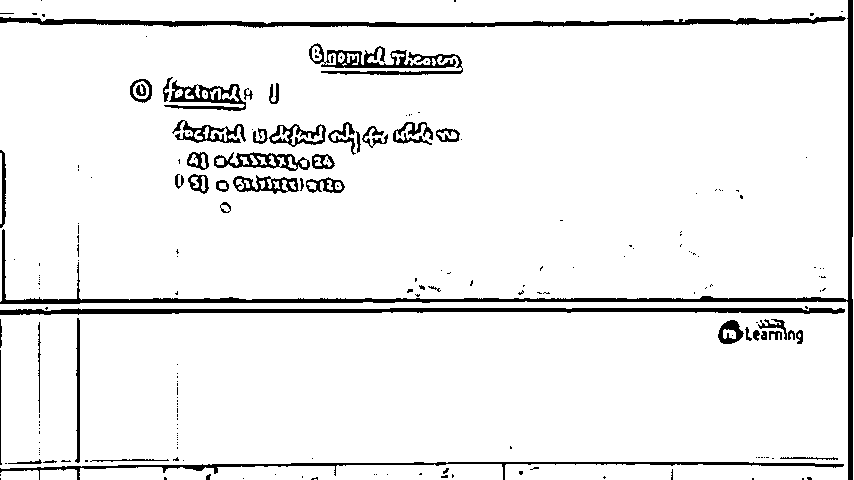 Binomial Theorem
① factorial :- !
factorial is defined only for whole no
4! = 4x3x2x1 = 24
5! = 5x4x3x2x1 = 120
Learning